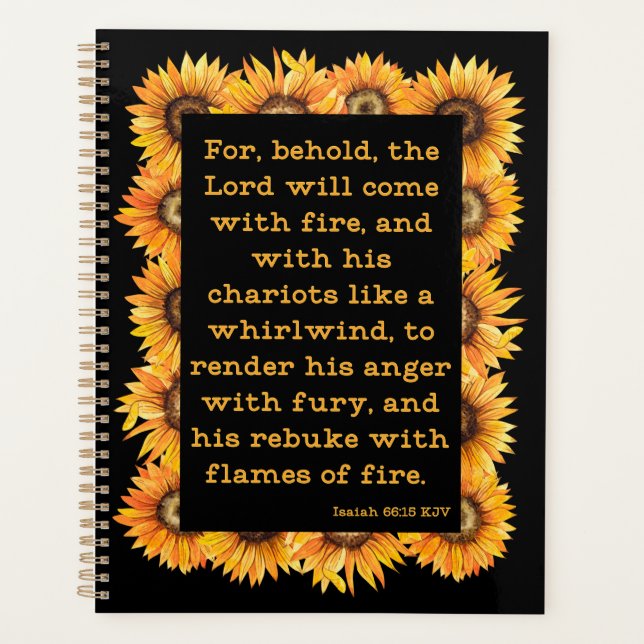 For, behold, the
Lord will come
with fire, and
with his
chariots like a
whirlwind, to
render his anger
with fury, and
his rebuke with
flames of fire.
Isaiah 66:15 KJV